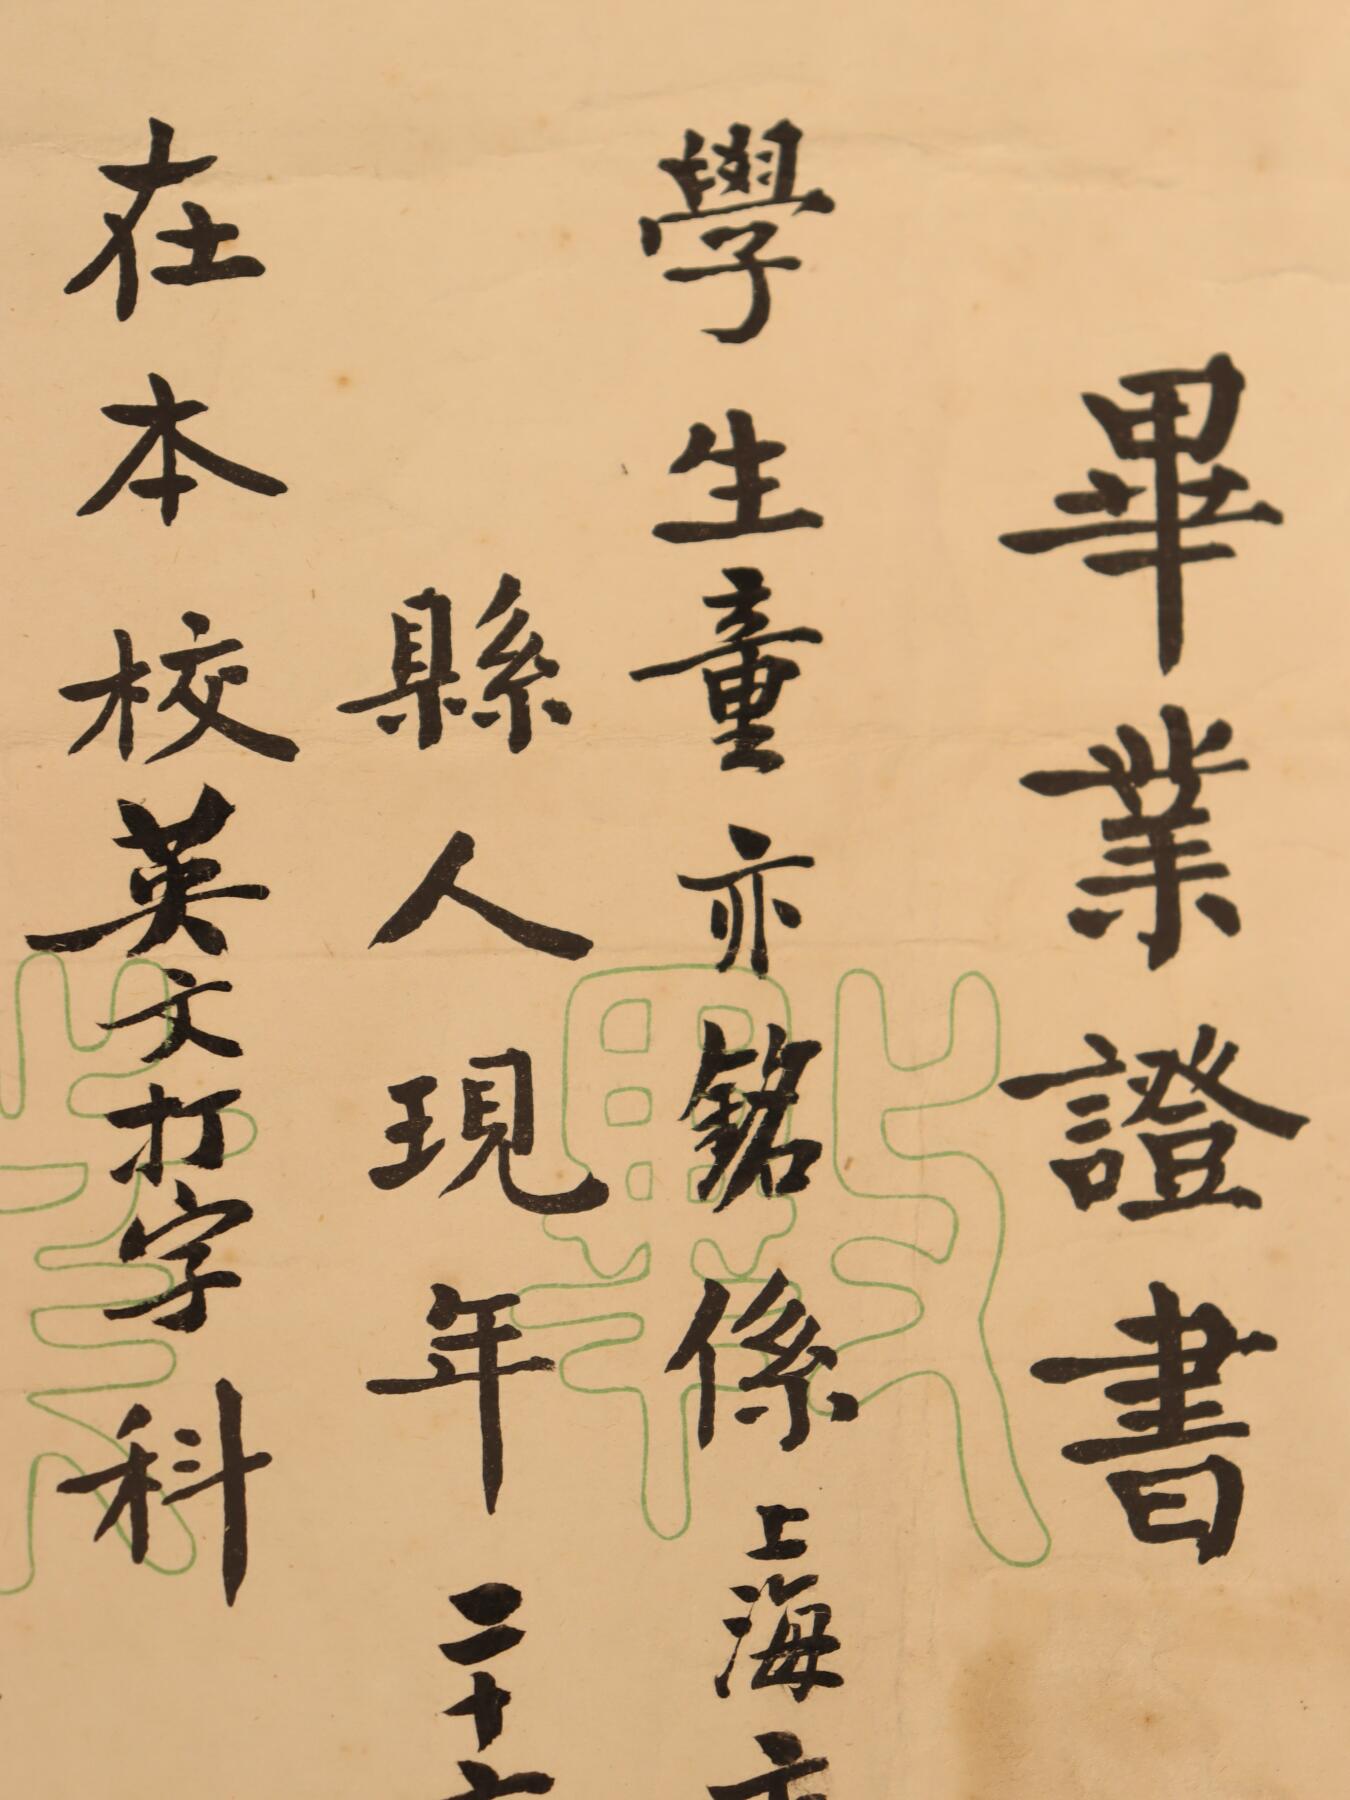 畢業證書
學生童亦銘係上海市
縣人現年二十六
在本校英文打字科